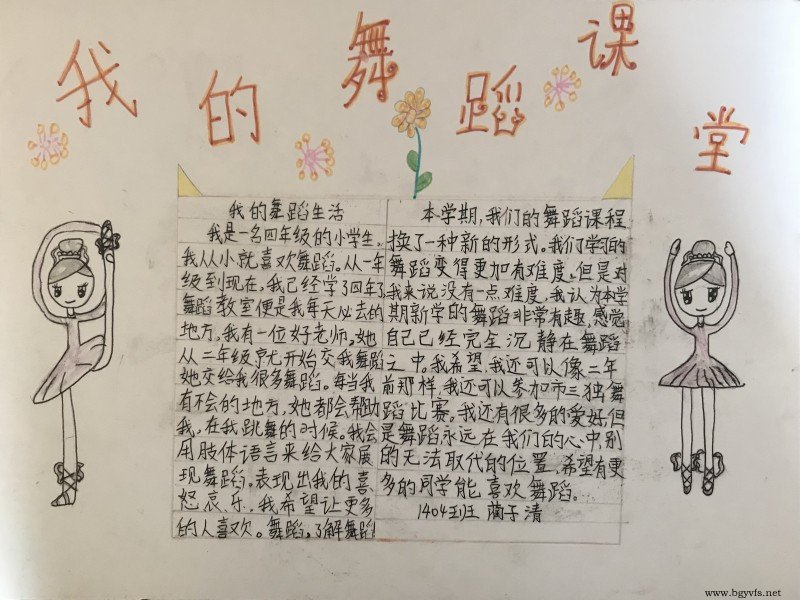 我的舞蹈课堂
我的舞蹈生活
我是一名四年级的小学生,
我从小就喜欢舞蹈。从一年
级到现在,我已经学了四年了
舞蹈教室便是我每天必去的
地方,我有一位好老师,她
从二年级就开始交我舞蹈
她交给我很多舞蹈。每当我
有不会的地方,她都会帮助
我,在我跳舞的时候。我会
用肢体语言来给大家展
现舞蹈。表现出我的喜、
怒、哀、乐,我希望让更多
的人喜欢。舞蹈,了解舞蹈
本学期,我们的舞蹈课程
换了一种新的形式。我们学习的
舞蹈变得更加有难度,但是对
我来说没有一点难度,我认为本学
期新学的舞蹈非常有趣,感觉
自己已经完全沉静在舞蹈
之中。我希望,我还可以像二年
前那样,我还可以参加市三独舞
蹈比赛。我还有很多的爱好,但
是舞蹈永远在我们的心中,别
的无法取代的位置,希望有更
多的同学能喜欢舞蹈。
1404班 蔺子清
www.bgyvfs.net